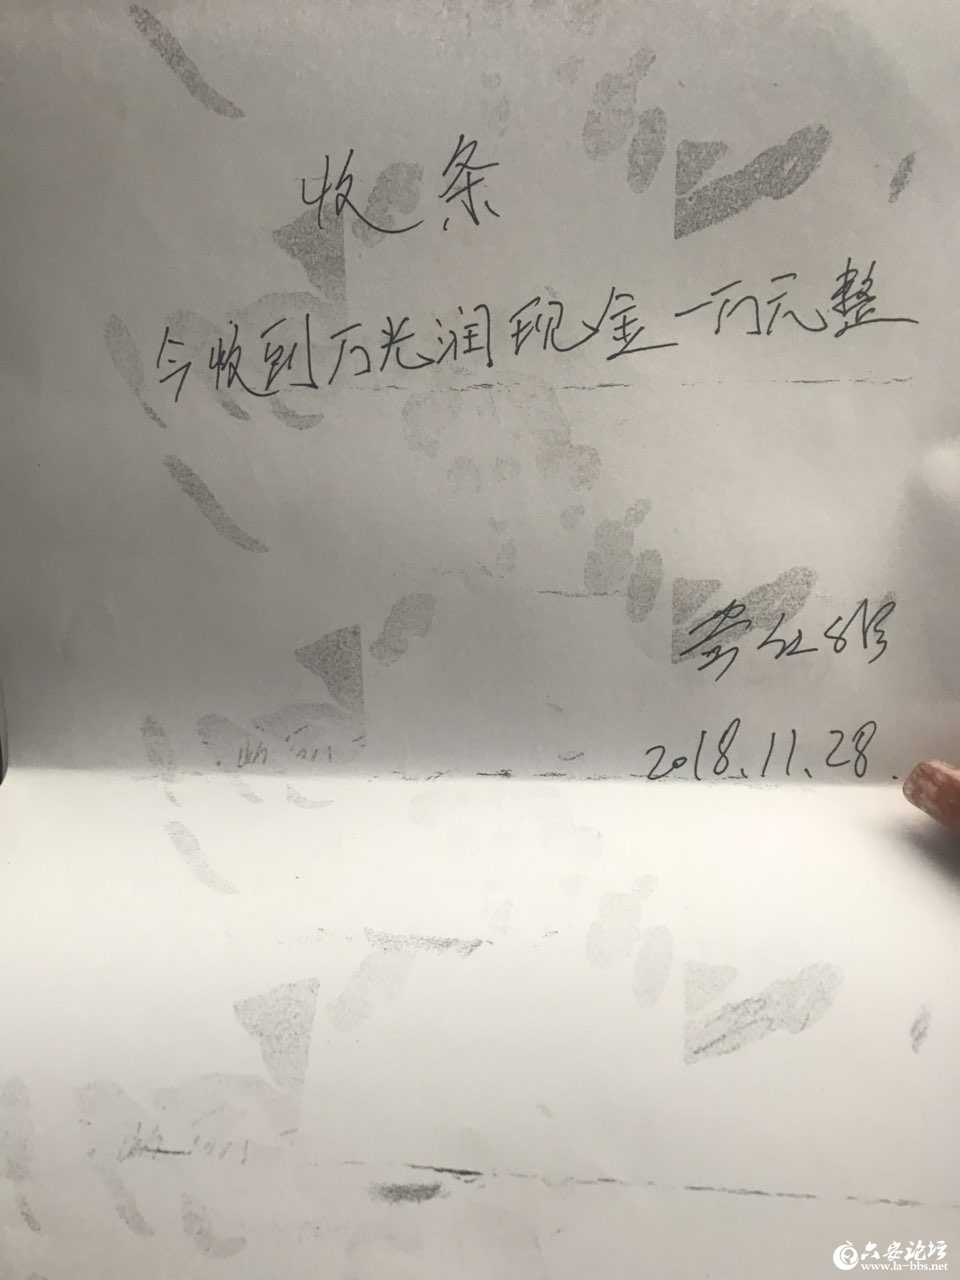 收条
今收到万光润现金一万元整
2018.11.28.
六安论坛
www.la-bbs.net